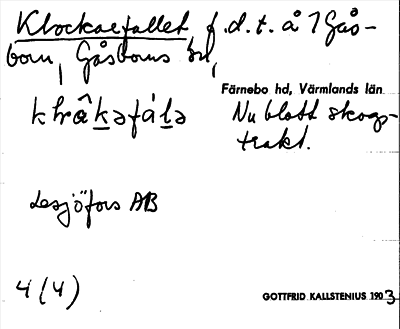 Klockarefallet, f.d.t. å 7 Gås-
born, Gåsborns sn,
Färnebo hd, Värmlands län
Nu blott skogs-
trakt.
Lesjöfors AB
4 (4)
GOTTFRID KALLSTENIUS 1903